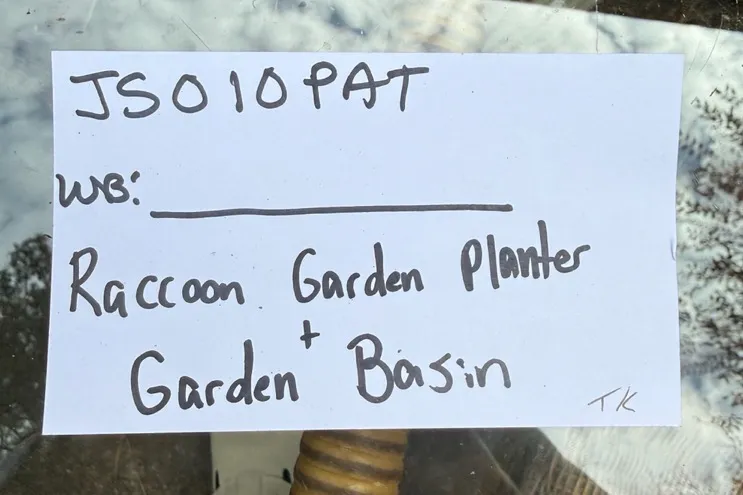 JS010PAT
WB: ____________
Raccoon Garden Planter
+
Garden Basin
TK